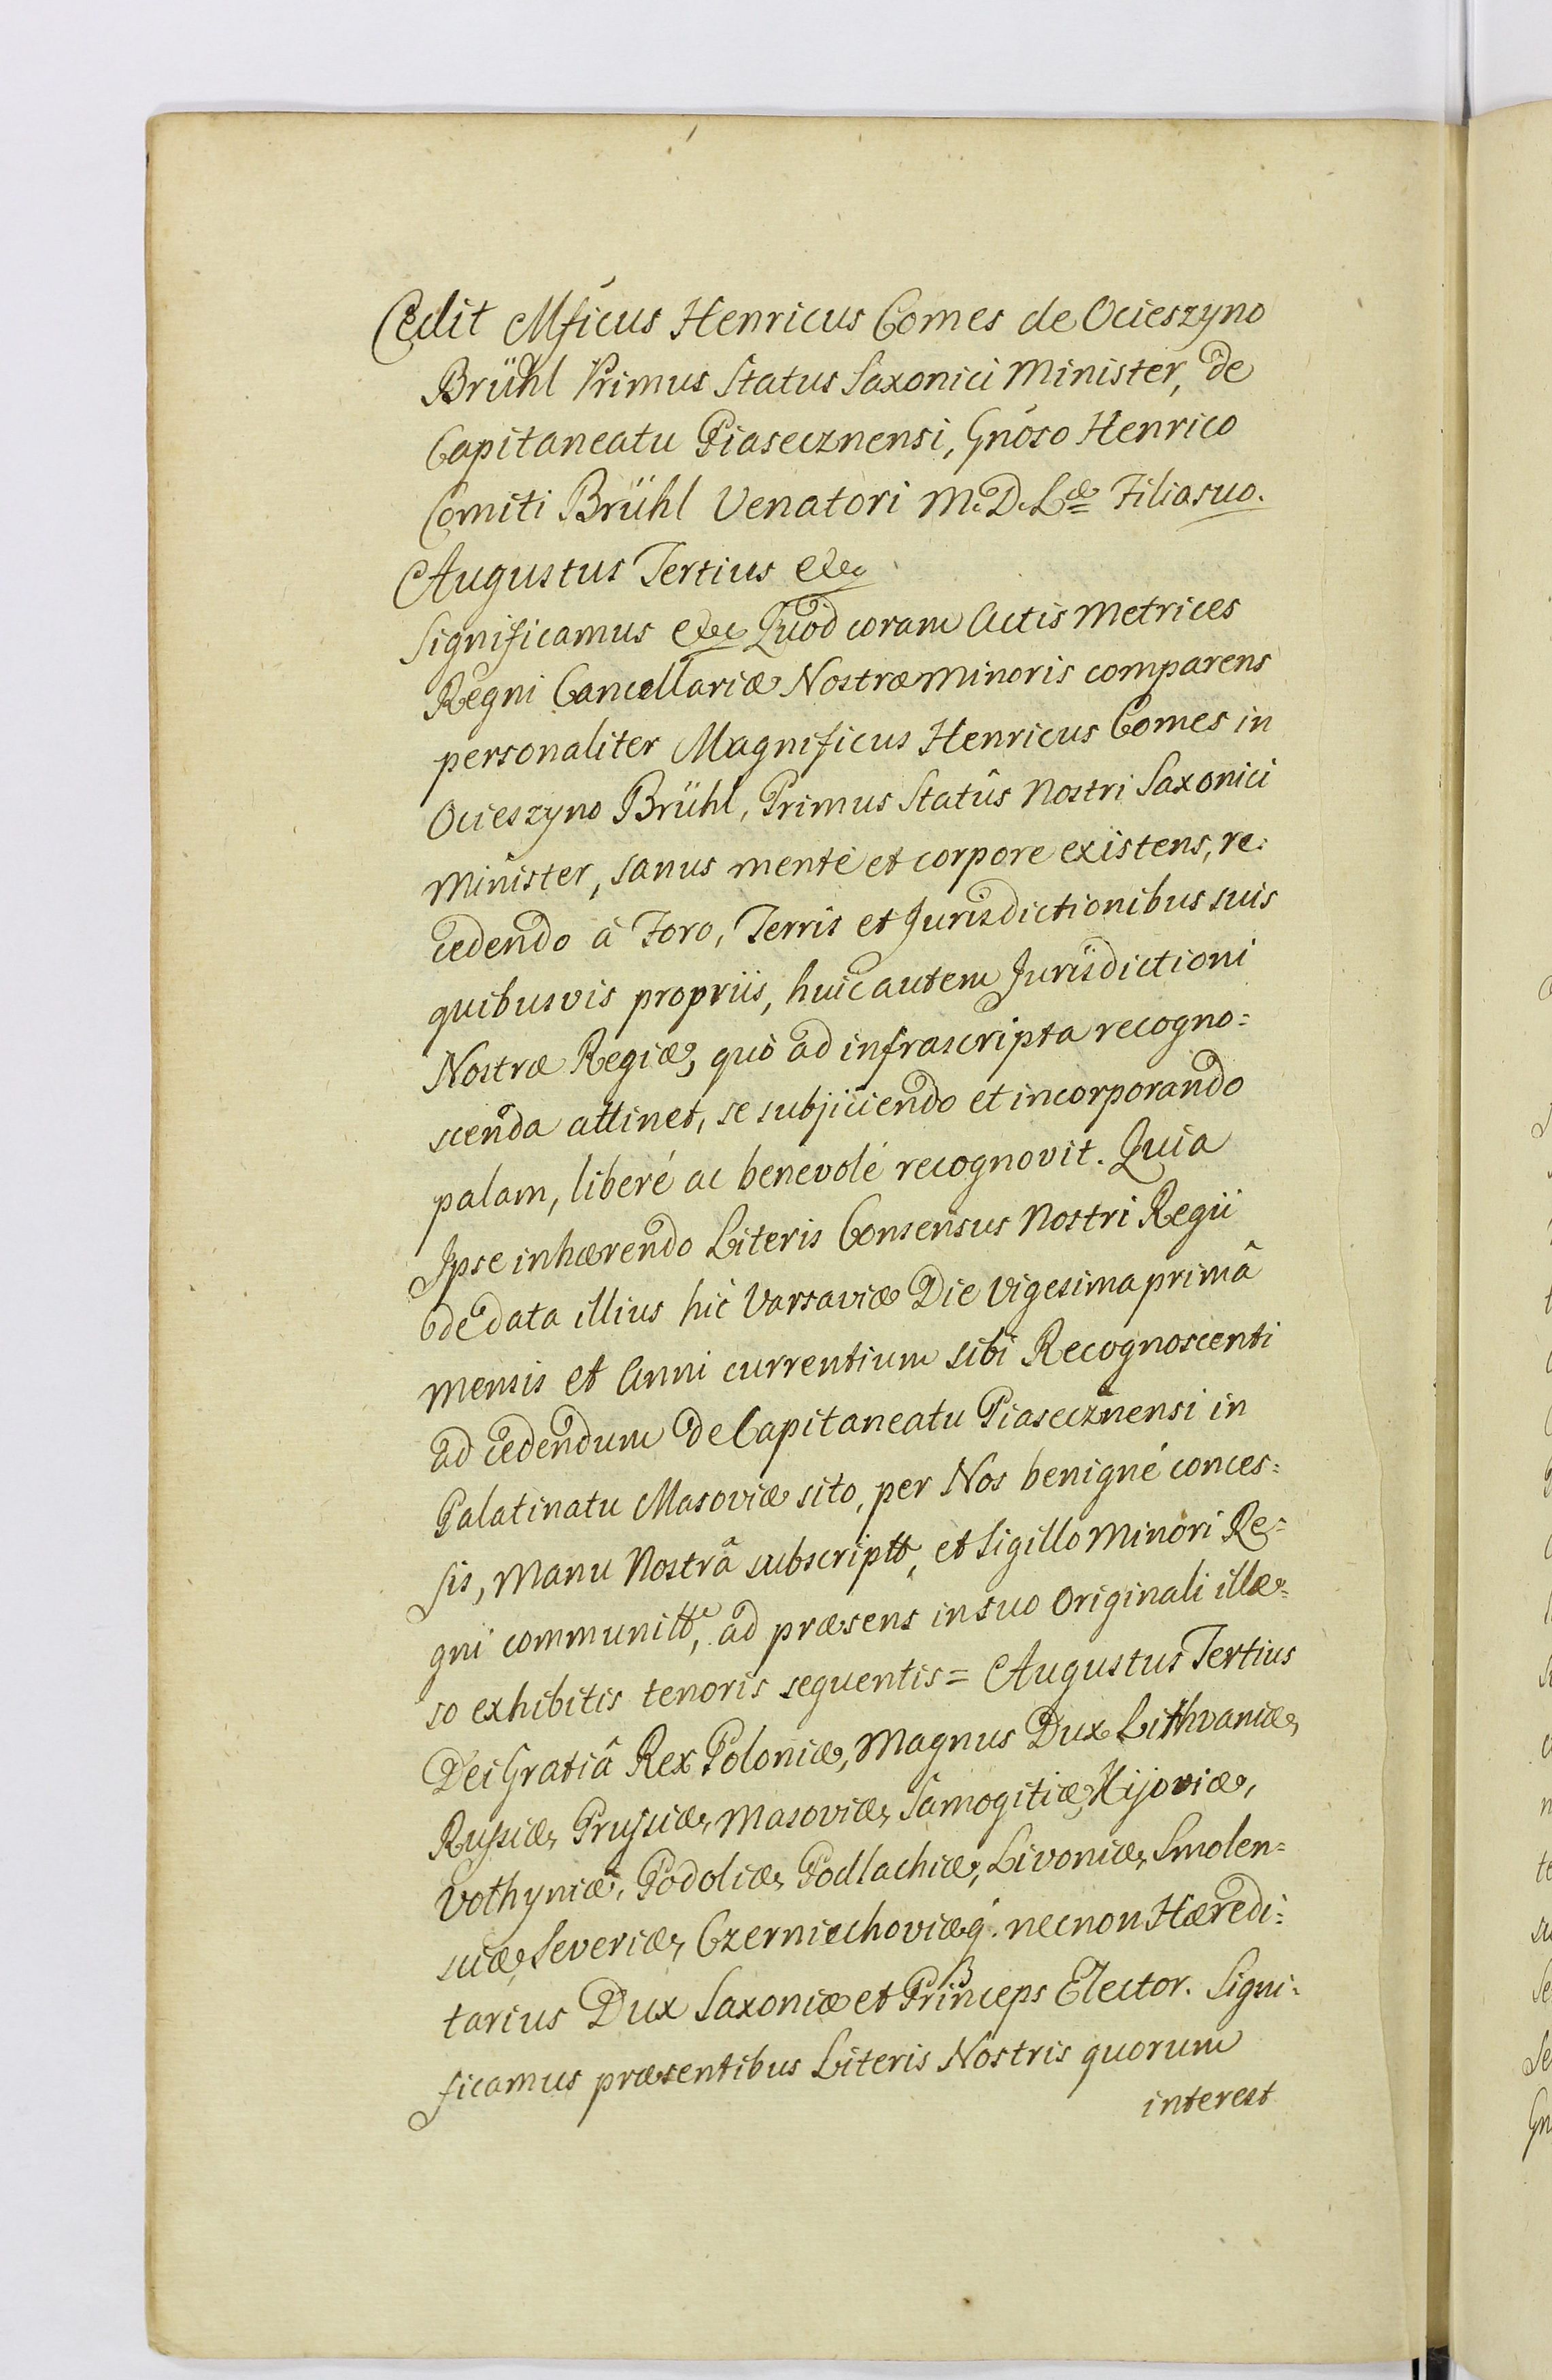 Cedit Mficus Henricus Comes de Ocieszyno
Brühl Primus Status Saxonici Minister, de
Capitaneatu Piasecznensi, Gnoso Henrico
Comiti Brühl Venatori M. D. Lae Filio suo.
Augustus Tertius etc
Significamus etc Quod coram Actis Metrices
Regni Cancellariæ Nostræ Minoris comparens
personaliter Magnificus Henricus Comes in
Ocieszyno Brühl, Primus Statûs Nostri Saxonici
Minister, sanus mente et corpore existens, re:
cedendo à Foro, Terris et Jurisdictionibus suis
quibusvis propriis, huic autem Jurisdictioni
Nostræ Regiæ, quò ad infrascripta recogno=
scenda attinet, se subjiciendo et incorporando
palam, liberé ac benevolé recognovit. Quia
Ipse inhærendo Literis Consensus Nostri Regii
de data illius hic Varsaviæ Die Vigesima primâ
Mensis et Anni currentium sibi Recognoscenti
ad cedendum de Capitaneatu Piasecznensi in
Palatinatu Masoviæ sito, per Nos benigné conces=
sis, Manu Nostrâ subscriptt, et Sigillo Minori Re=
gni communitt, ad præsens in suo Originali illæ=
so exhibitis tenoris sequentis = Augustus Tertius
Dei Gratiâ Rex Poloniæ, Magnus Dux Lithvaniæ,
Russiæ, Prussiæ, Masoviæ, Samogitiæ, Kijoviæ,
Volhyniæ, Podoliæ, Podlachiæ, Livoniæ, Smolen=
sciæ, Severiæ, Czerniechoviæq. necnon Hæredi=
tarius Dux Saxoniæ et Princeps Elector. Signi=
ficamus præsentibus Literis Nostris quorum
interest